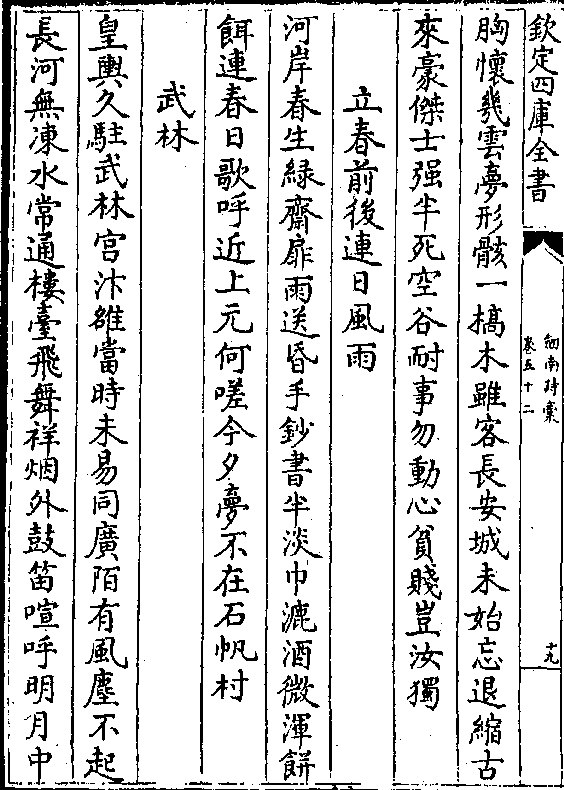 欽定四庫全書
劍南詩稾
卷五十二
十九
胸懷幾雲夢形骸一槁木雖客長安城未始忘退縮古
來豪傑士强半死空谷耐事勿動心貧賤豈汝獨
立春前後連日風雨
河岸春生緑齋扉雨送昏手鈔書半淡巾漉酒微渾餅
餌連春日歌呼近上元何嗟今夕夢不在石帆村
武林
皇輿久駐武林宫汴雒當時未易同廣陌有風塵不起
長河無凍水常通樓臺飛舞祥烟外鼓笛喧呼明月中